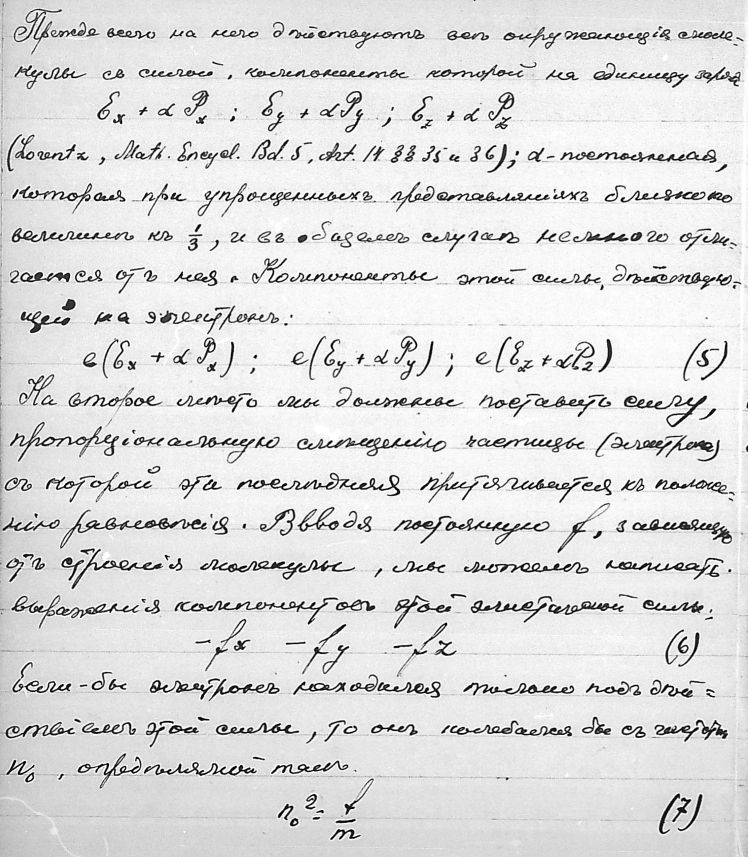 Прежде всего на него дѣйствуютъ всѣ окружающія моле=
кулы съ силой, компоненты которой на единицу заряда
Ɛx + α Px ; Ɛy + α Py ; Ɛz + α Pz
(Lorentz, Math. Encycl. Bd. 5, Art. 14 §§ 35 и 36); α - постоянная,
которая при упрощенныхъ представленіяхъ близка по
величинѣ къ 1/3, и въ общемъ случаѣ немного отли-
чается отъ нея. Компоненты этой силы, дѣйствую-
щей на электронъ:
e(Ɛx + α Px) ; e(Ɛy + α Py) ; e(Ɛz + α Pz) (5)
На второе мѣсто мы должны поставить силу,
пропорціональную смѣщенію частицы (электрона)
съ которой эта послѣдняя притягивается къ положе-
нію равновѣсія. Вводя постоянную f, зависящую
отъ строенія молекулы, мы можемъ написать
выраженія компонентовъ этой эластической силы:
-fx -fy -fz (6)
Если-бы электронъ находился только подъ дѣй=
ствіемъ этой силы, то онъ колебался бы съ частотой
n₀, опредѣляемой такъ.
n₀² = f/m (7)